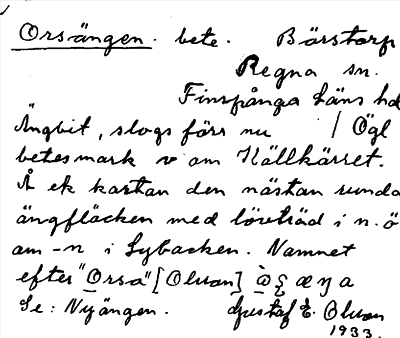 Orsängen. bete. Bärstorp
Regna sn.
Finspånga läns hd
Ängbit, slogs förr nu / Ögl
betesmark v om Källkärret.
Å ek kartan den nästan runda
ängfläcken med lövträd i n.ö
om -n i Lybacken. Namnet
efter "Orsa" [Olsson]
Se: Nyängen. Gustaf E. Olsson
1933.